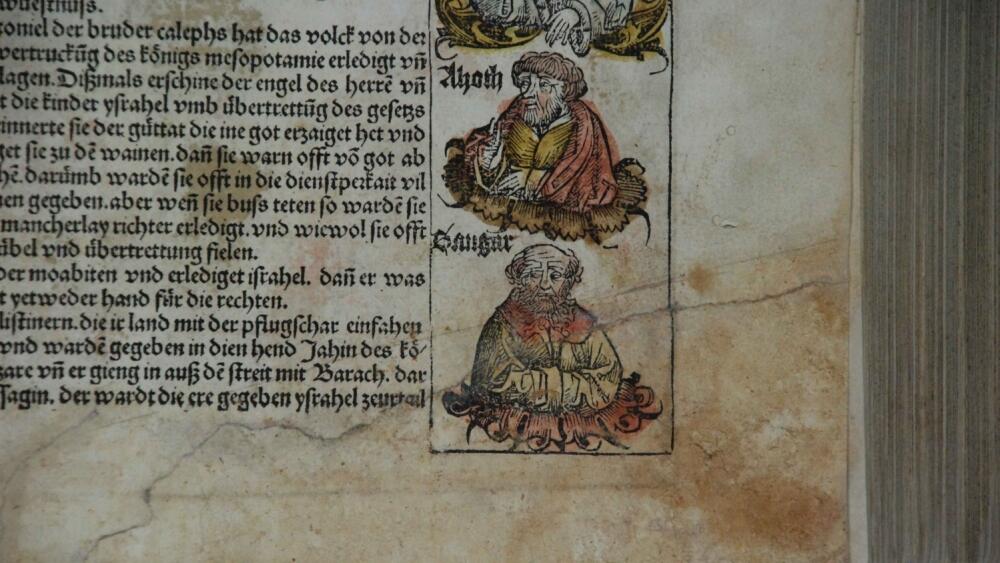 wuestnuss.
toniel der bruder calephs hat das volck von der
vertruckūg des königs mesopotamie erledigt vn̄
lagen. Dißmals erschine der engel des herrē vn̄
t die kinder ysrahel vmb übertrettūg des gesetzs
innerte sie der gůttat die ine got erzaiget het vnd
get sie zu dē wainen. dan̄ sie warn offt vō got ab
hē. darūmb wardē sie offt in die dienstperkait vil
en gegeben. aber wen̄ sie buss teten so wardē sie
mancherlay richter erledigt. vnd wiewol sie offt
übel vnd übertrettung fielen.
der moabiten vnd erlediget israhel. dan̄ er was
t yetweder hand für die rechten.
listinern. die ir land mit der pflugschar einfahen
vnd wardē gegeben in dien hend Jahin des kö-
zare vn̄ er gieng in auß dē streit mit Barach. dar
Tagin. der wardt die ere gegeben ysrahel zeurtail
Ahoth
Sangar